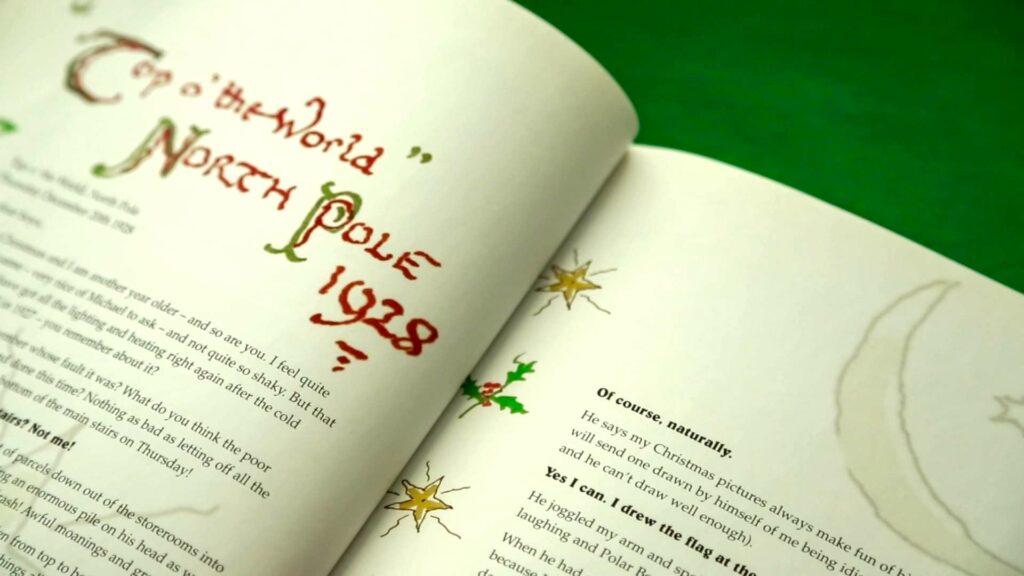 Top o' the World”
NORTH POLE
1928
Top o' the World, North Pole
Thursday, December 20th 1928
Christmas and I am another year older – and so are you. I feel quite
very nice of Michael to ask – and not quite so shaky. But that
got all the lighting and heating right again after the cold
1927 – you remember about it?
whose fault it was? What do you think the poor
done this time? Nothing as bad as letting off all the
bottom of the main stairs on Thursday!
Not me!
of parcels down out of the storerooms into
an enormous pile on his head as
Awful moanings and
from top to
Of course, naturally.
He says my Christmas pictures always make fun of
will send one drawn by himself of me being
and he can't draw well enough).
Yes I can. I drew the flag at the
He joggled my arm and
laughing and Polar
When he had
because